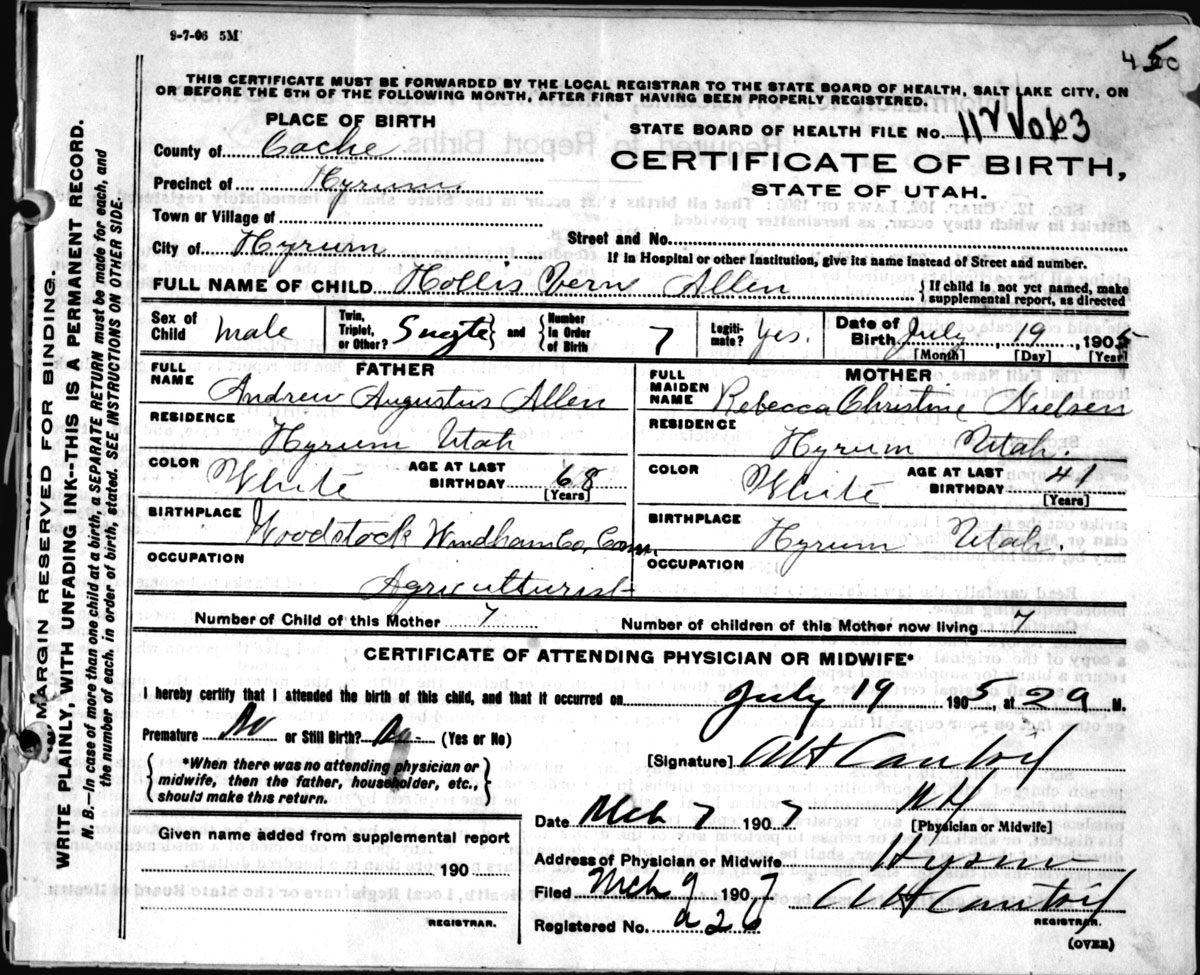 9-7-06 5M
THIS CERTIFICATE MUST BE FORWARDED BY THE LOCAL REGISTRAR TO THE STATE BOARD OF HEALTH, SALT LAKE CITY, ON
OR BEFORE THE 5TH OF THE FOLLOWING MONTH, AFTER FIRST HAVING BEEN PROPERLY REGISTERED.
MARGIN RESERVED FOR BINDING.
WRITE PLAINLY, WITH UNFADING INK--THIS IS A PERMANENT RECORD.
N. B.—In case of more than one child at a birth, a SEPARATE RETURN must be made for each, and
the number of each, in order of birth, stated. SEE INSTRUCTIONS ON OTHER SIDE.
PLACE OF BIRTH
County of Cache
Precinct of Hyrum
Town or Village of
City of Hyrum
STATE BOARD OF HEALTH FILE No.
CERTIFICATE OF BIRTH,
STATE OF UTAH.
Street and No.
If in Hospital or other Institution, give its name instead of Street and number.
FULL NAME OF CHILD Hollis Vern Allen
{ If child is not yet named, make
supplemental report, as directed
Sex of Child male
Twin, Triplet, or Other? } and { Number in Order of Birth 7
Legitimate? Yes.
Date of Birth July 19, 1905
[Month] [Day] [Year]
FATHER
FULL NAME Andrew Augustus Allen
RESIDENCE Hyrum Utah
COLOR White AGE AT LAST BIRTHDAY 68 [Years]
BIRTHPLACE Woodstock Windham Co, Conn.
OCCUPATION Agriculturist
MOTHER
FULL MAIDEN NAME Rebecca Christine Nielsen
RESIDENCE Hyrum Utah.
COLOR White AGE AT LAST BIRTHDAY 41 [Years]
BIRTHPLACE Hyrum Utah.
OCCUPATION
Number of Child of this Mother 7 Number of children of this Mother now living 7
CERTIFICATE OF ATTENDING PHYSICIAN OR MIDWIFE*
I hereby certify that I attended the birth of this child, and that it occurred on July 19 1905, at 2 a M.
Premature No or Still Birth? No (Yes or No)
{ *When there was no attending physician or
midwife, then the father, householder, etc.,
should make this return. }
[Signature]
[Physician or Midwife]
Date Mch 7 1907
Given name added from supplemental report
190
REGISTRAR.
Address of Physician or Midwife Hyrum
Filed Mch 9 1907
REGISTRAR.
Registered No.
(OVER)